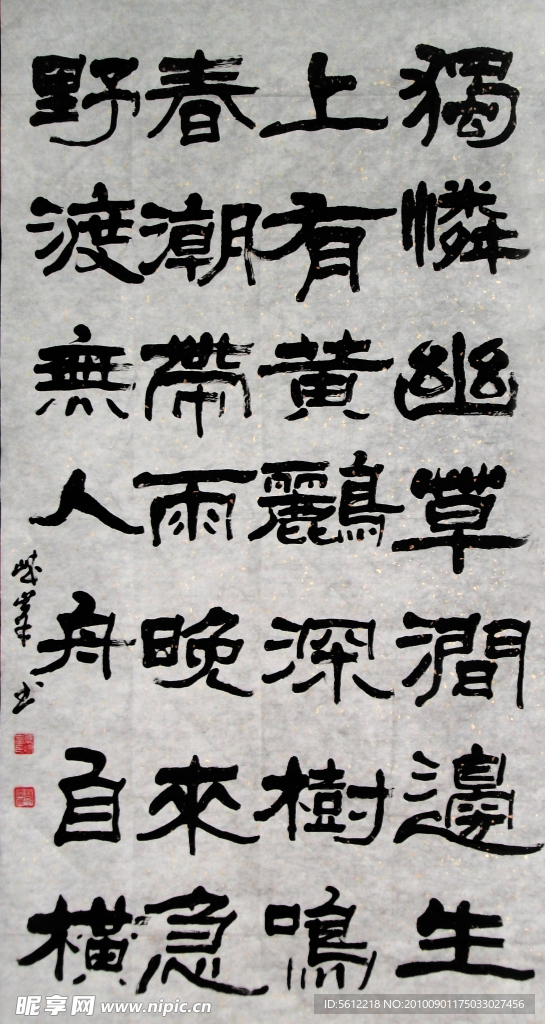 獨憐幽草澗邊生
上有黄鸝深樹鳴
春潮帶雨晚來急
野渡無人舟自横
书
昵享网 www.nipic.cn
ID:5612218 NO:20100901175033027456